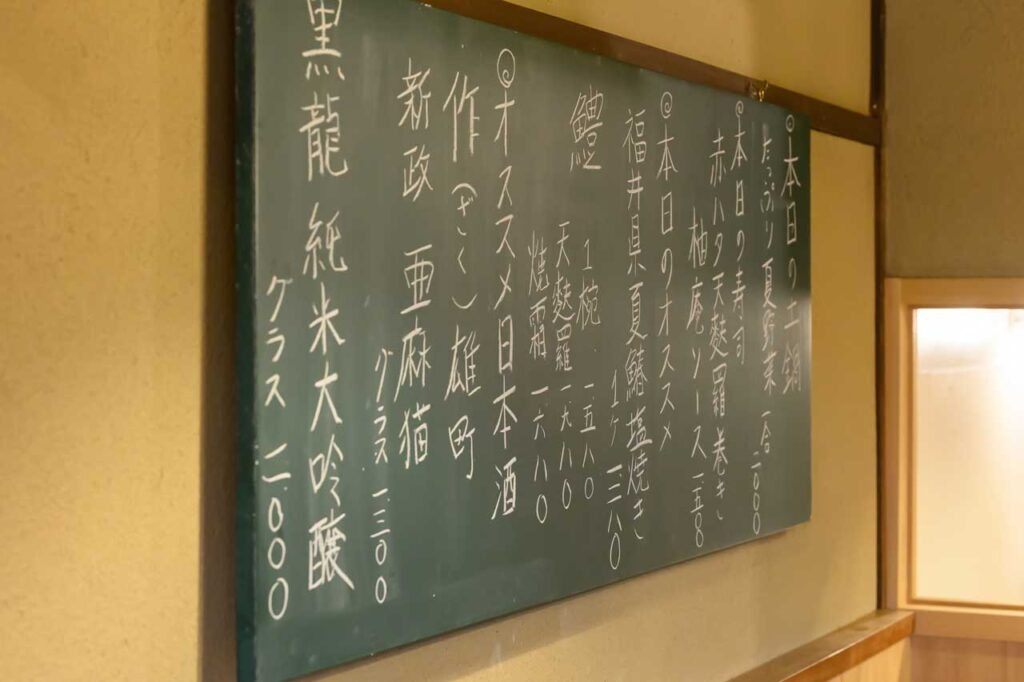 ◎本日の土鍋
たっぷり夏野菜 一合
◎本日の寿司
赤ハタ天麩羅巻き
柚庵ソース
◎本日のオススメ
福井県夏鰆塩焼き
1ヶ 一.三八0
鱧 1椀 一.五八0
天麩羅 一.九八0
焼霜 一.六八0
◎オススメ日本酒
作(ざく)雄町
新政 亜麻猫
グラス 一.三00
黒龍 純米大吟醸
グラス 二.000